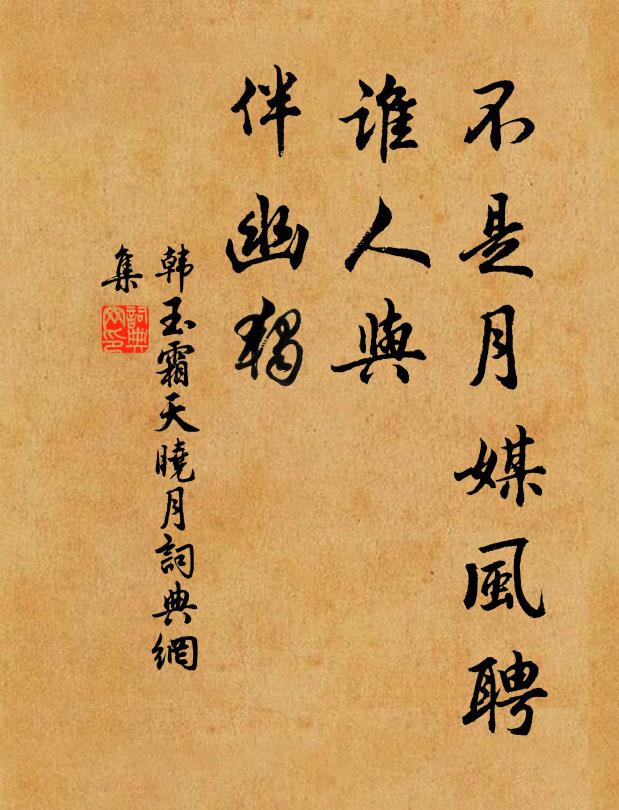 不是月媒風聘
誰人與
伴幽獨
韩玉霜天曉月詞典網
集
詞典
网印